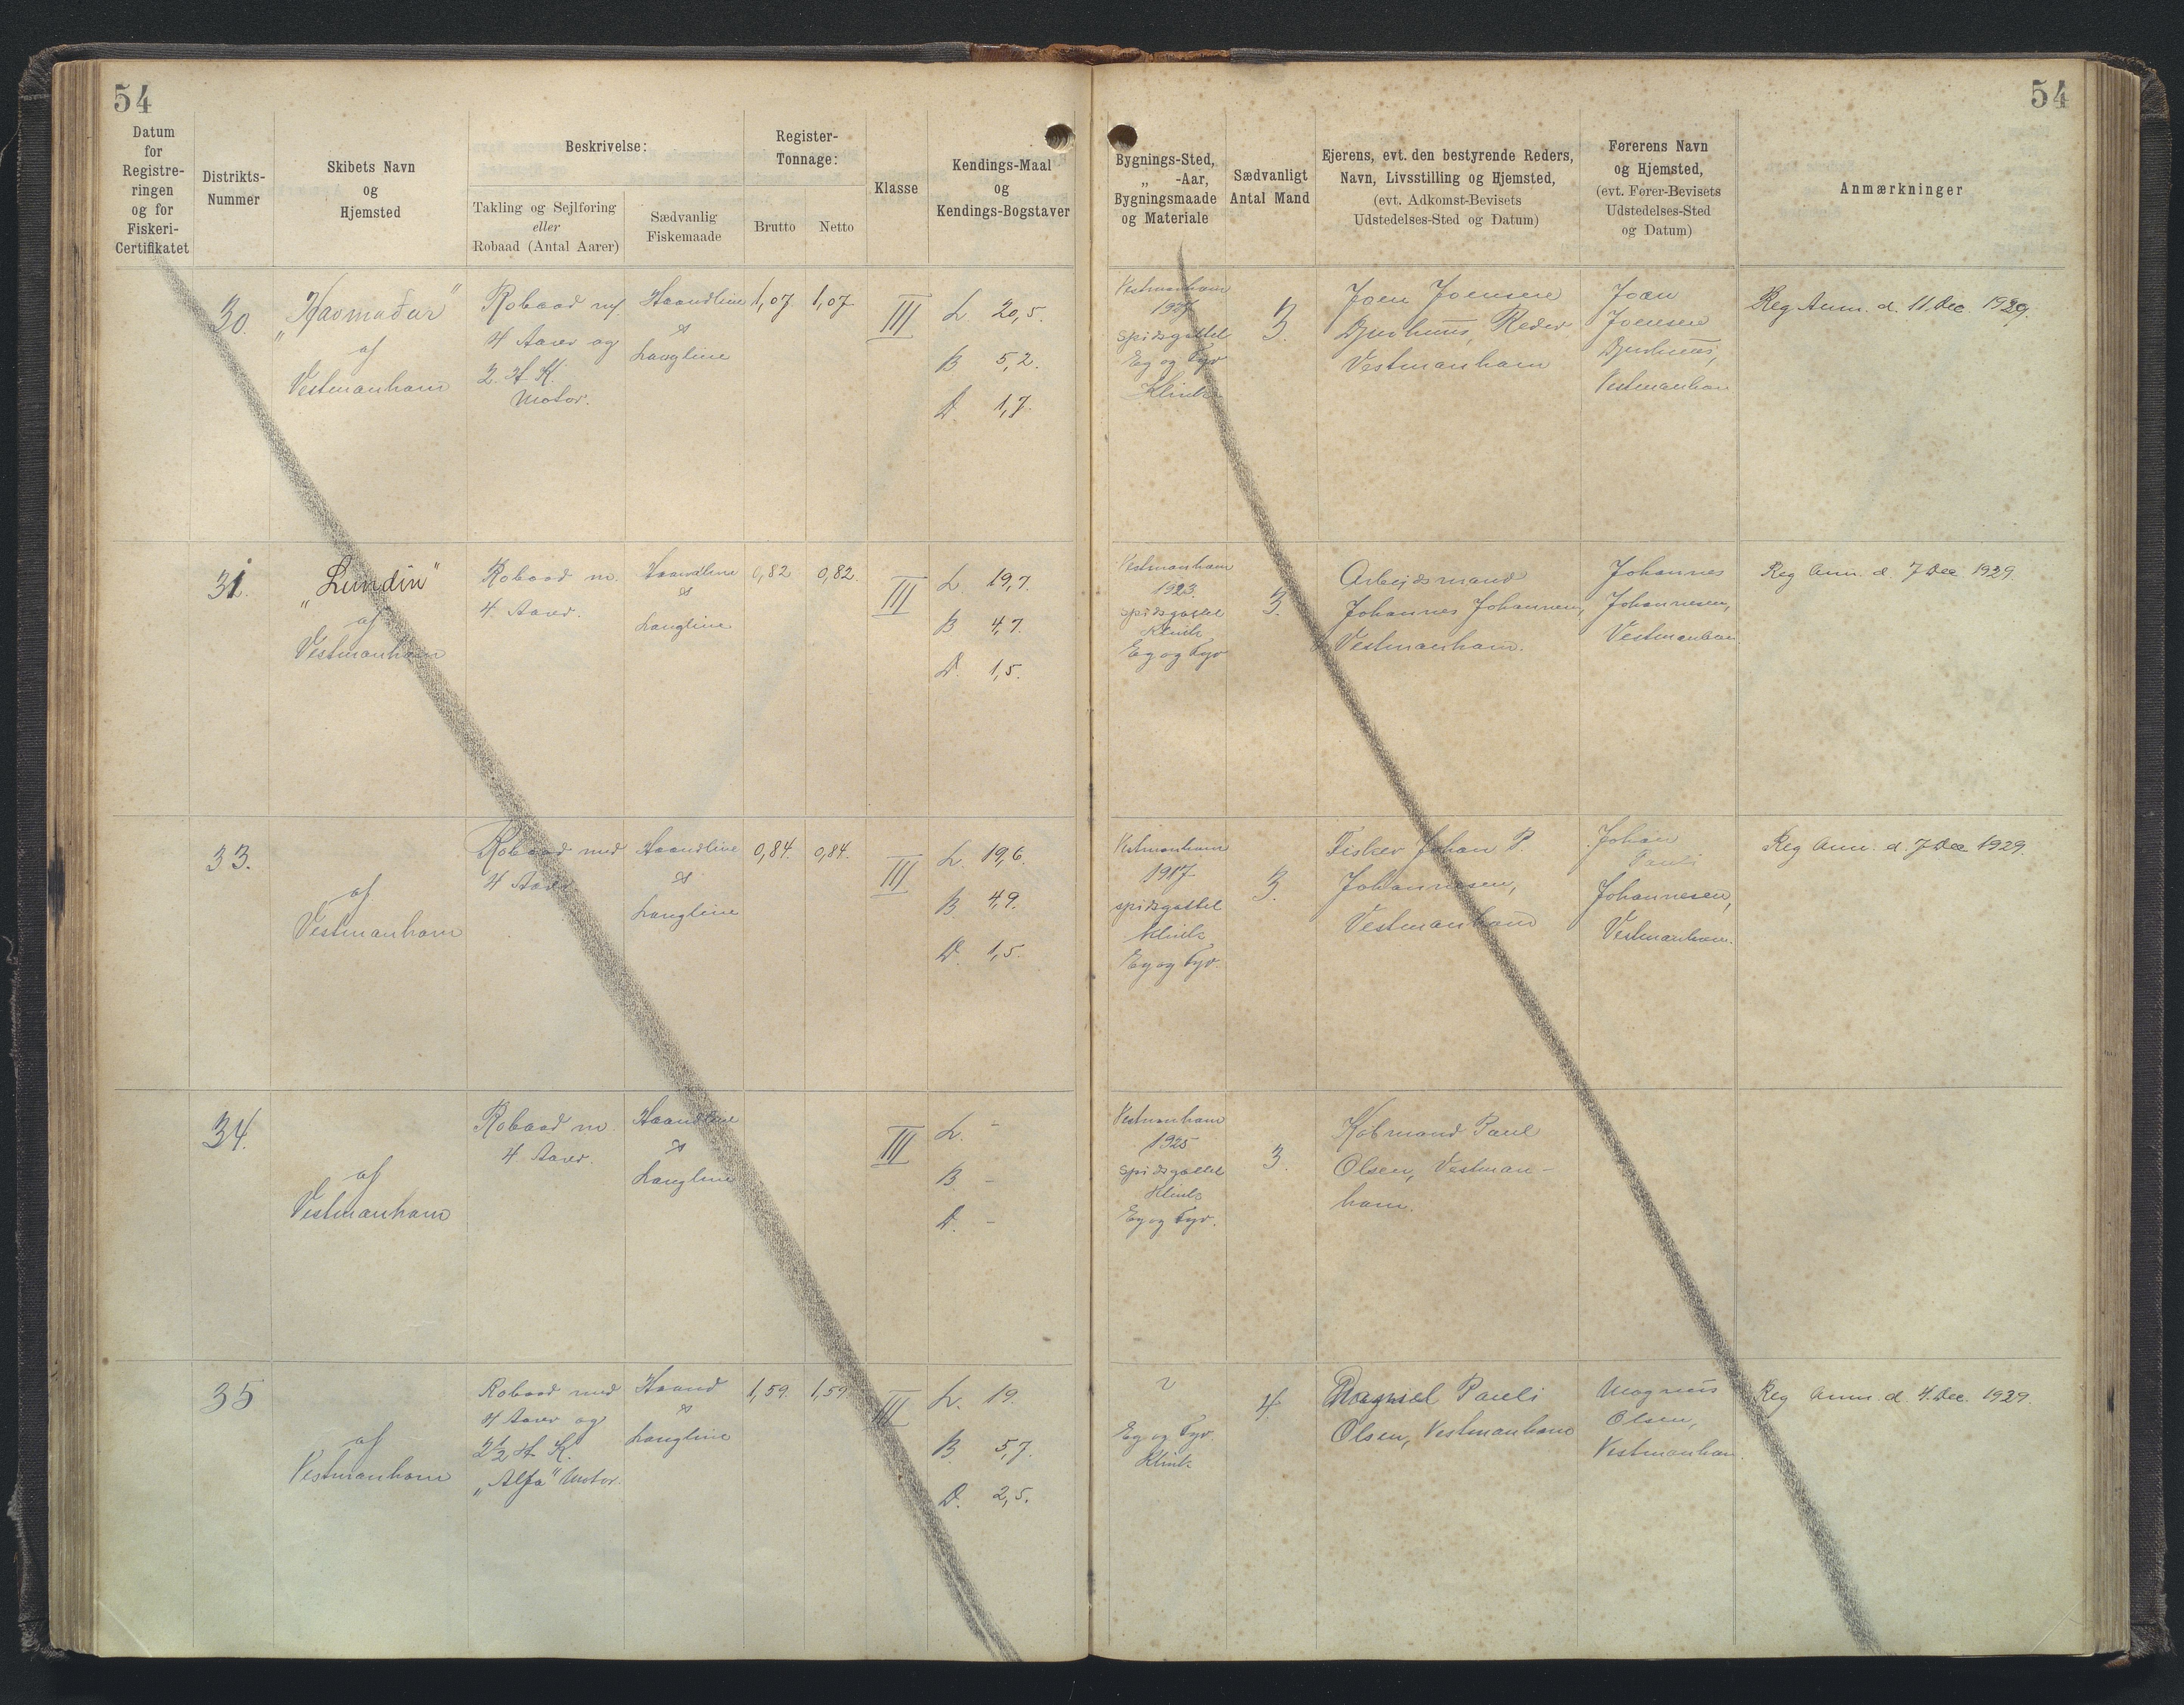 54
54
Datum
for
Registre-
ringen
og for
Fiskeri-
Certifikatet
Distrikts-
Nummer
Skibets Navn
og
Hjemsted
Beskrivelse:
Takling og Sejlføring
eller
Robaad (Antal Aarer)
Sædvanlig
Fiskemaade
Register-
Tonnage:
Brutto
Netto
Klasse
Kendings-Maal
og
Kendings-Bogstaver
Bygnings-Sted,
„ -Aar,
Bygningsmaade
og Materiale
Sædvanligt
Antal Mand
Ejerens, evt. den bestyrende Reders,
Navn, Livsstilling og Hjemsted,
(evt. Adkomst-Bevisets
Udstedelses-Sted og Datum)
Førerens Navn
og Hjemsted,
(evt. Fører-Bevisets
Udstedelses-Sted
og Datum)
Anmærkninger
30.
„Havmaður"
af
Vestmanhavn
Robaad m/
4 Aarer og
2. H.K.
Motor.
Haandline
&
Langline
1,07.
1,07
III
L. 20,5.
B 5,2.
D. 1,7.
Vestmanhavn
1927
spidsgattet
Eg og Fyr
Klink
3.
Joen Joensen
Djurhuus, Reder
Vestmanhavn
Joen
Joensen
Djurhuus,
Vestmanhavn
Reg Anm. d. 11. Dec. 1929.
31.
„Lundin"
af
Vestmanhavn
Robaad m.
4 Aarer.
Haandline
&
Langline
0,82
0,82.
III
L. 19,7.
B 4,7.
D. 1,5.
Vestmanhavn
1923.
spidsgattet
Klink
Eg og Fyr
3.
Arbejdsmand
Johannes Johannesen,
Vestmanhavn.
Johannes
Johannesen,
Vestmanhavn
Reg Anm. d. 7 Dec 1929.
33.
af
Vestmanhavn
Robaad med
4 Aarer
Haandline
&
Langline
0,84.
0,84.
III
L. 19,6.
B. 4,9.
D. 1,5.
Vestmanhavn
1917
spidsgattet
Klink
Eg og Fyr.
3.
Fisker Johan P.
Johannesen,
Vestmanhavn
Johan
Pauli
Johannesen,
Vestmanhavn.
Reg Anm. d. 7 Dec 1929.
34.
af
Vestmanhavn
Robaad m.
4 Aarer.
Haandline
&
Langline
III
L. -
B. -
D. -
Vestmanhavn
1925
spidsgattet
Klink
Eg og Fyr.
3.
Købmand Paul
Olsen, Vestman-
havn.
35
af
Vestmanhavn
Robaad med
4 Aarer og
2½ H.K.
„Alfa" Motor.
Haand
&
Langline
1,59.
1,59
III
L. 19.
B. 5,7.
D. 2,5.
Eg og Fyr
Klink
4.
Pauli
Olsen, Vestmanhavn
Magnus
Olsen,
Vestmanhavn.
Reg Anm. d. 4. Dec. 1929.